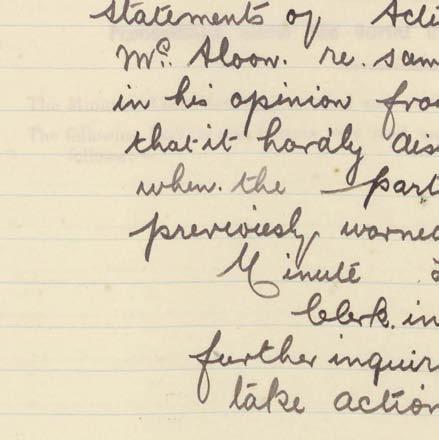 Statements of Acti
Mr. Sloan. re. sam
in his opinion fro
that it hardly des
when. the part
previously warned
Minute
Clerk. in
further inquir
take action